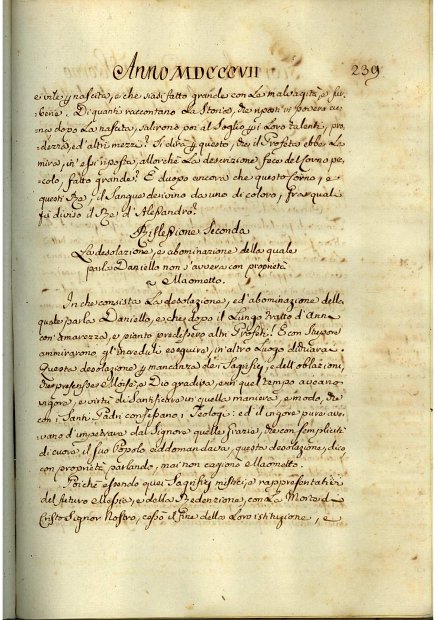 Anno MDCCCVII 239
e vile p nascita, e che siasi fatto grande con la malvagità, e fur-
beria. Di quanti raccontano le Storie, che riposti in povera cu-
na dopo la nascita, salirono poi al Soglio p i loro talenti, pro-
dezza, ed altri mezzi? Si dirà p questo, che il Profeta ebbe la
mira, in essi riposta, allorchè la descrizione fece del Corno pic-
colo, fatto grande? È duopo ancora che questo Corno, e
questi Rè discenda da uno di coloro, fra quali
fu diviso il Rè d'Alessandro?
Riflessione Seconda
La desolazione, e abominazione della quale
parla Daniello non s'avvera con proprietà
a Maometto.
In che consista la desolazione, ed abominazione della
quale parla Daniello, e che, dopo il lungo tratto d'Anni
con amarezza, e pianto predissero altri Profeti? E con stupore
ammirarono gl'increduli eseguirsi, in altro luogo dichiarai.
Questa desolazione, e mancanza dei Sagrifizj, e dell'oblazioni,
che prescrisse Moisè, a Dio gradite, e in quel tempo aveano
vigore, e virtù di Santificare in quella maniera, e modo, che
con i Santi Padri confessano i Teologi: ed il vigore pure ave-
vano d'impetrare dal Signore quelle grazie, che con semplicità
di cuore il suo Popolo addomandava, questa desolazione, dico
con proprietà parlando, mai non cagionò Maometto.
Poichè essendo quei Sagrifizj misterj rappresentativi
del futuro Messia, e della Redenzione, con la Morte di
Cristo Signor Nostro, cessò il fine della loro istituzione, e